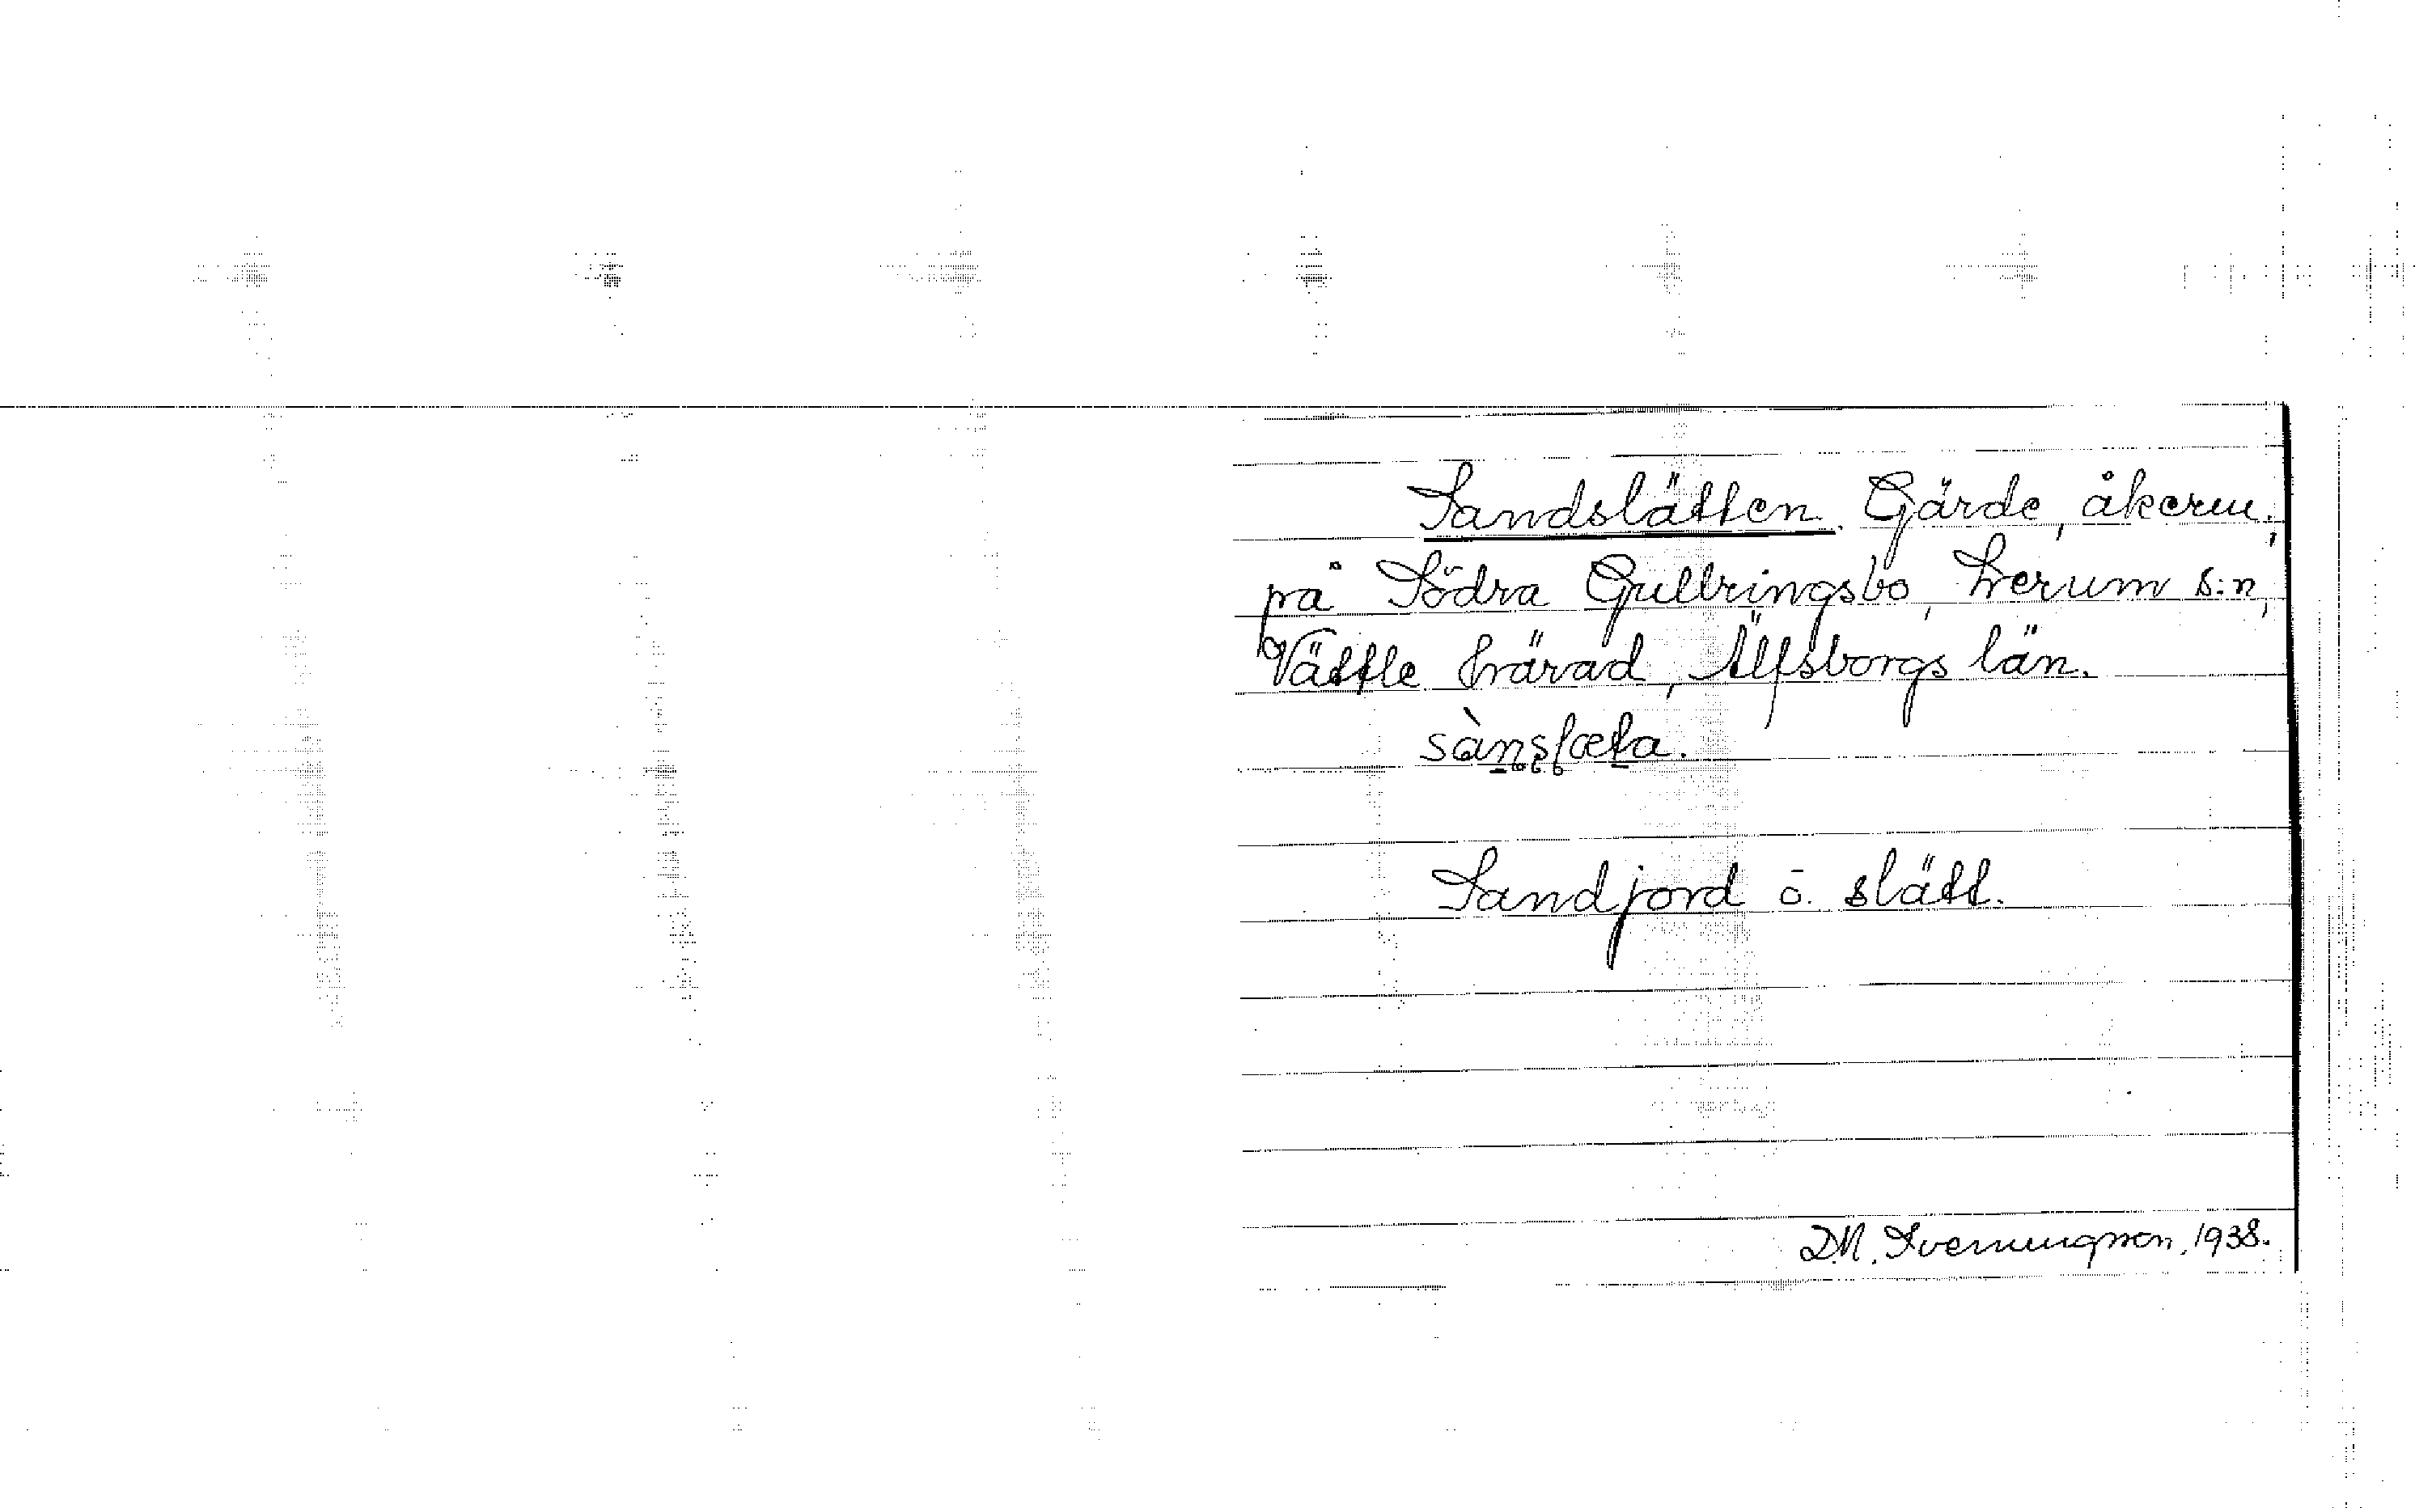 Sandslätten. Gärde, åkerm.,
på Södra Gullringsbo, Lerum s:n,
Vättle härad, Älfsborgs län.
sànslæta.
Sandjord o. slätt.
D.N. Svenungsson, 1938.